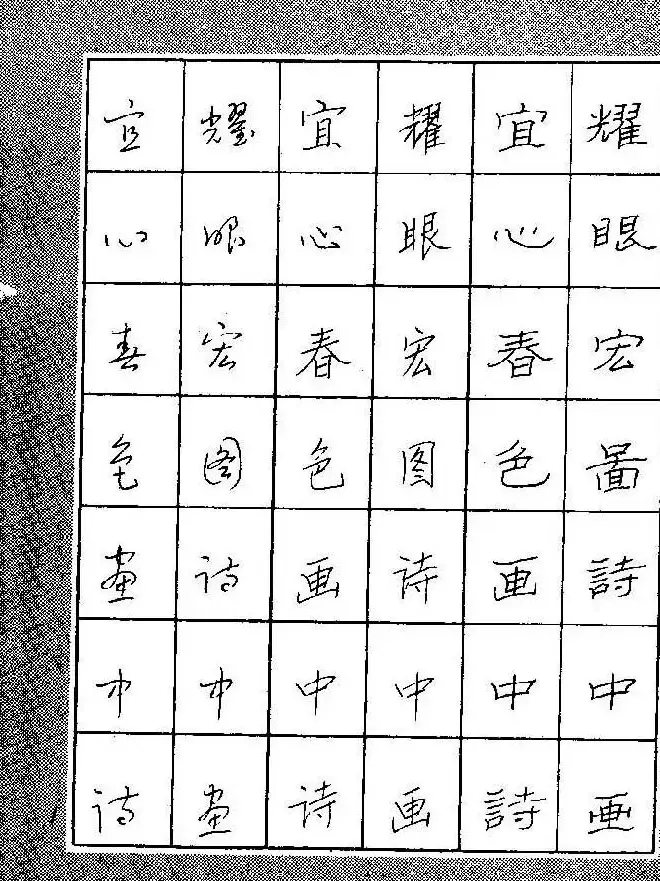 耀眼宏圖詩中画
宜心春色画中詩
耀眼宏图诗中画
宜心春色画中诗
耀眼宏图诗中画
宜心春色画中诗